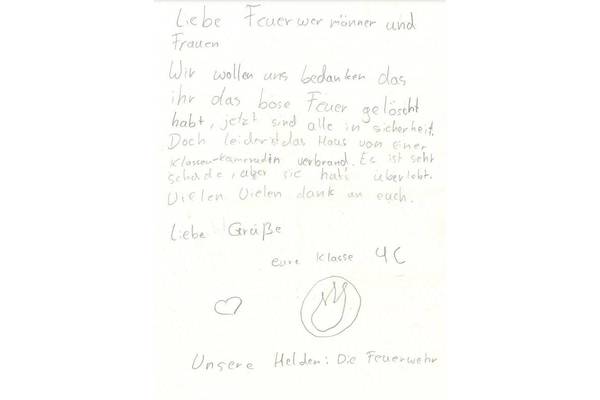 Liebe Feuerwermänner und
Frauen
Wir wollen uns bedanken das
ihr das böse Feuer gelöscht
habt, jetzt sind alle in sicherheit.
Doch leider ist das Haus von einer
Klassenkammradin verbrand. Es ist sehr
schade, aber sie hats überlebt.
Vielen Vielen dank an euch.
Liebe Grüße
eure Klasse 4C
Unsere Helden: Die Feuerwehr